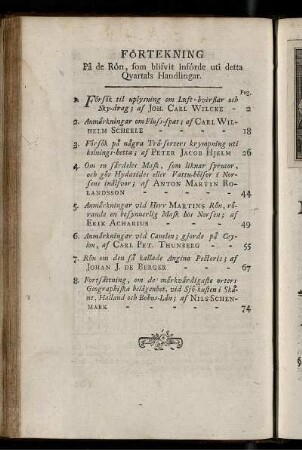 FÖRTEKNING
På de Rön, som blifvit införde uti detta
Qvartals Handlingar.
Pag.
1. Försök til uplysning om Luft-hvirflar och
Sky-drag; af JOH. CARL WILCKE - 2
2. Anmärkningar om Fluss-spat; af CARL WIL-
HELM SCHEELE - - - - 18
3. Försök på några Trä-sorters krympning uti
kolnings-hetta; af PETER JACOB HJELM - 26
4. Om en särdeles Mask, som liknar Spretor,
och gör Hydatides eller Vattu-blåsor i Nor-
sens inälfvor; af ANTON MARTIN RO-
LANDSSON - - - - 44
5. Anmärkningar vid Herr MARTINS Rön, rö-
rande en besynnerlig Mask hos Norsen; af
ERIK ACHARIUS - - - - 49
6. Anmärkningar vid Canelen; gjorde på Cey-
lon, af CARL PET. THUNBERG - - 55
7. Rön om den så kallade Angina Pectoris; af
JOHAN J. DE BERGER - - - 67
8. Fortsättning, om de märkvärdigaste orters
Geographiska belägenhet, vid Sjö-kusten i Skå-
ne, Halland och Bohus-Län; af NILS SCHEN-
MARK - - - - - 74